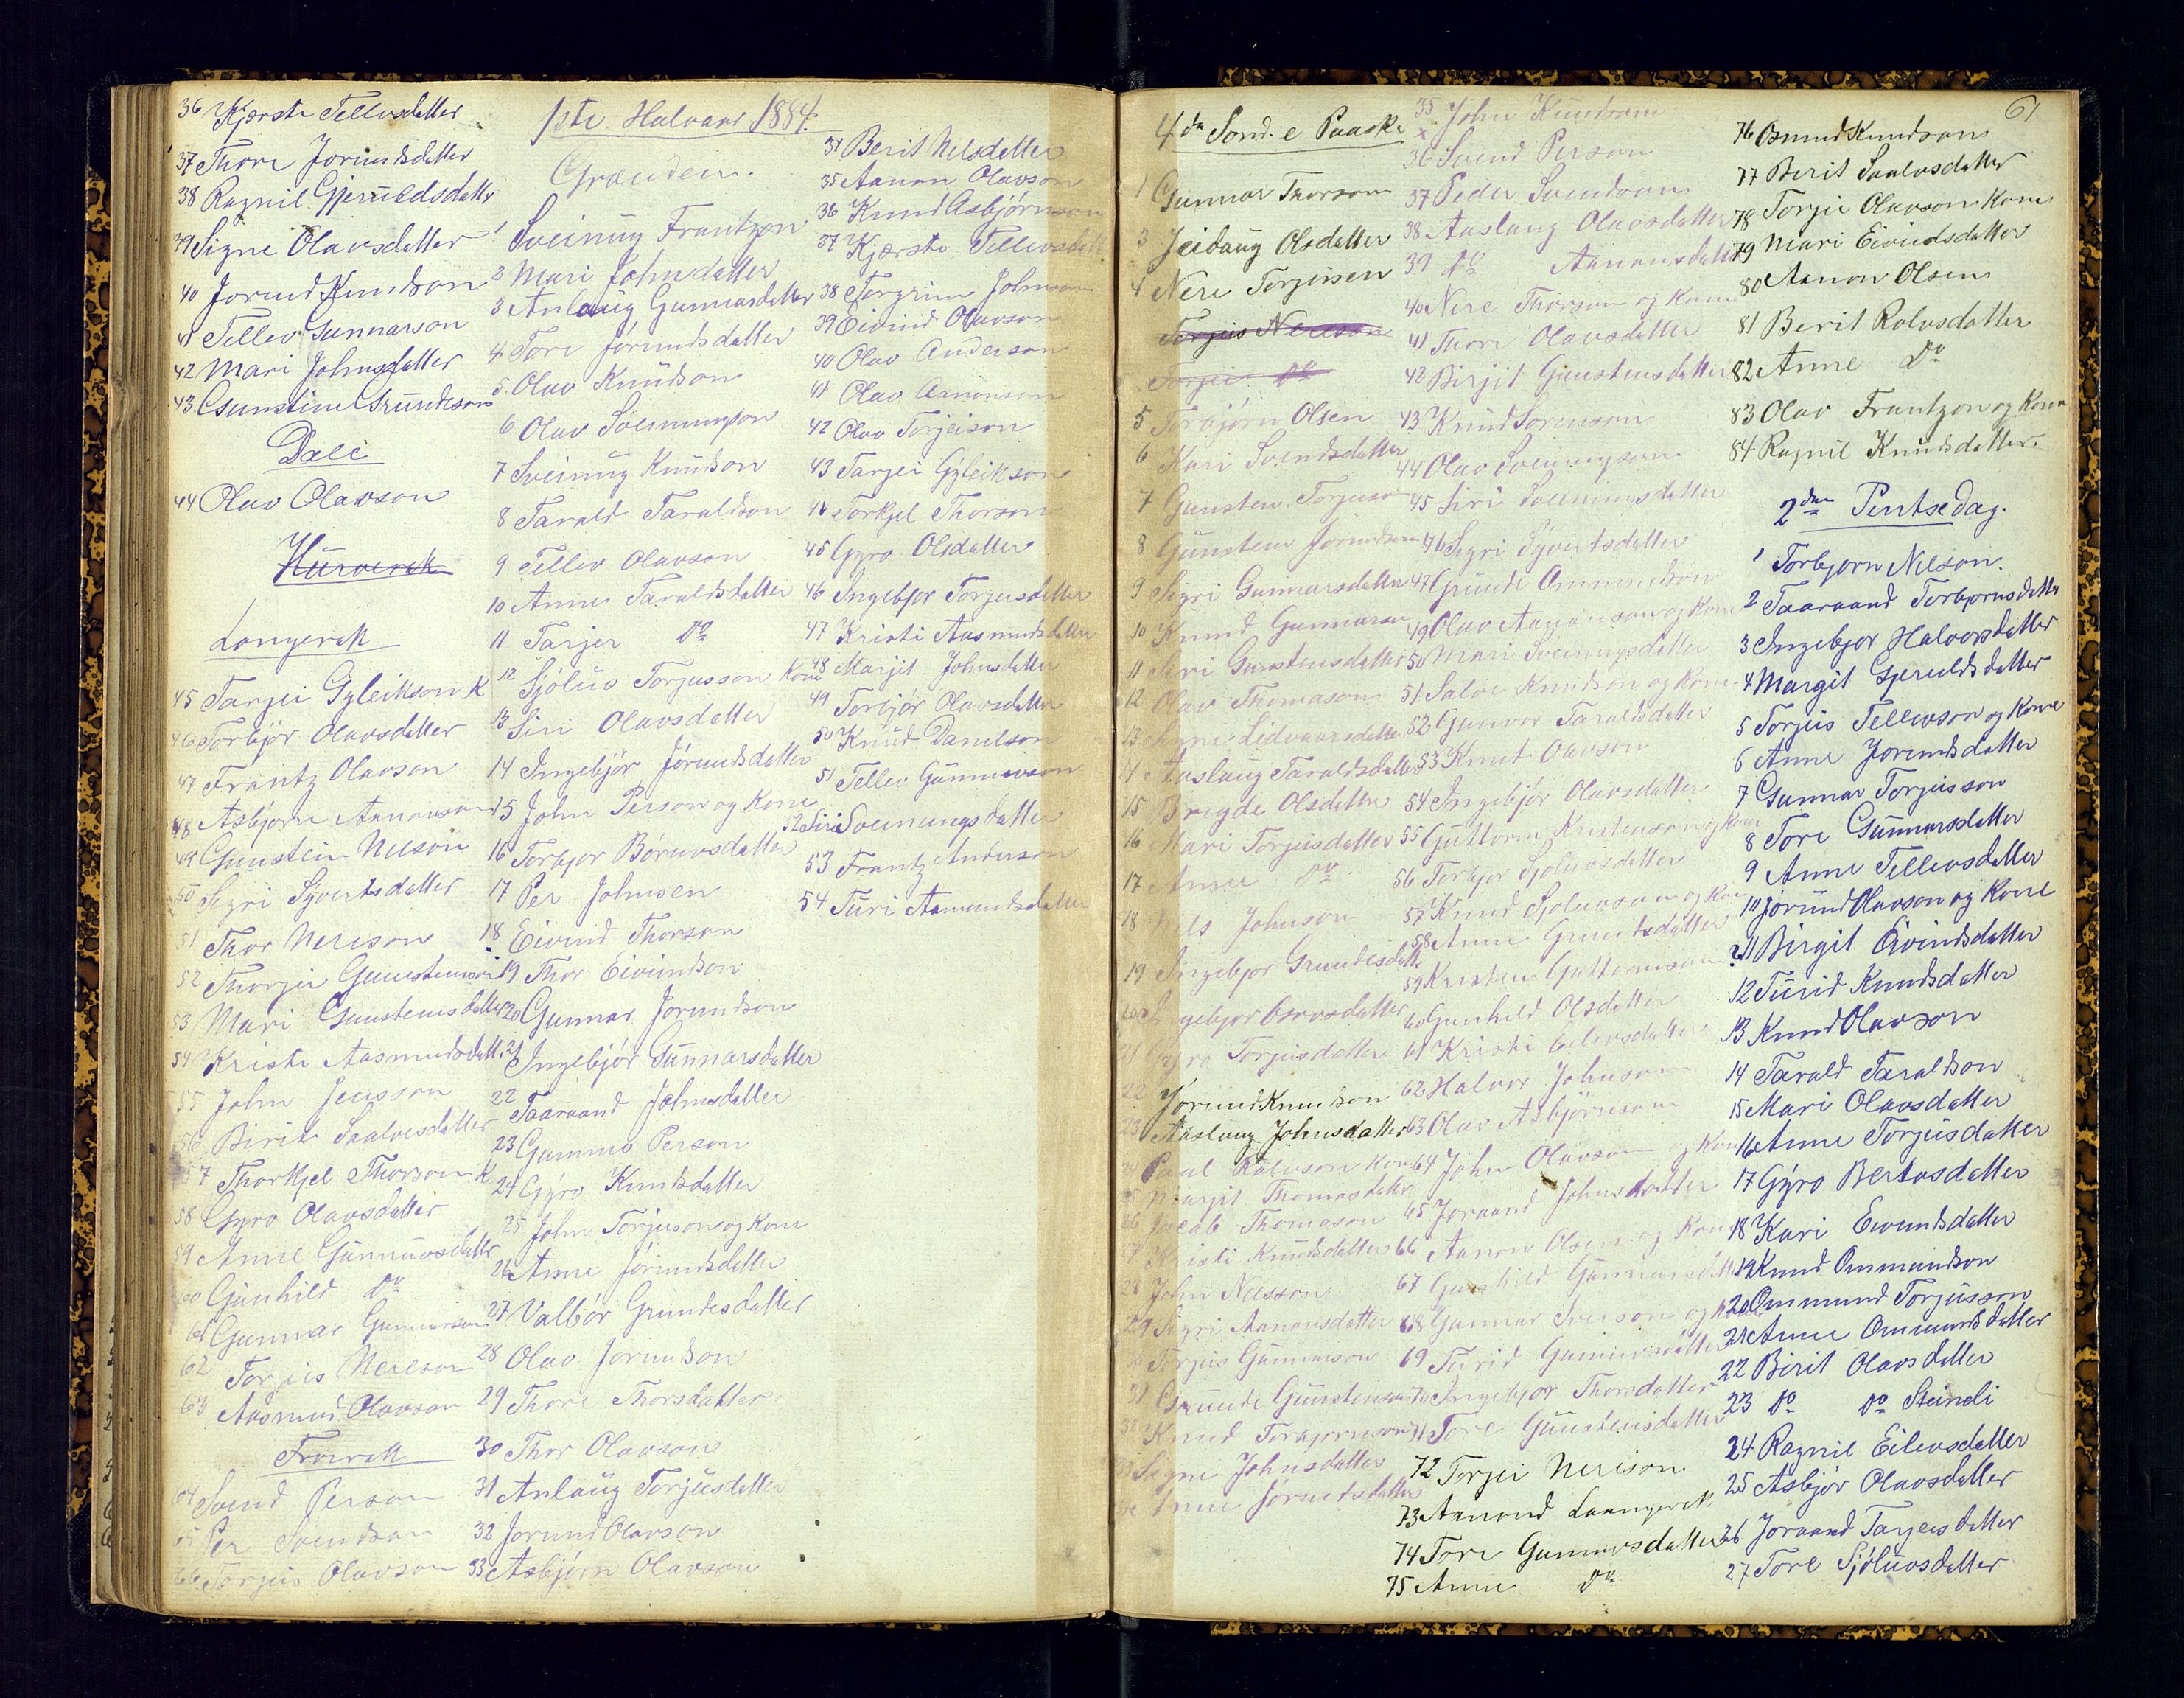 36 Kjerste Tellevsdatter
37 Thore Jorundsdatter
38 Ragnil Gjeruldsdatter
39 Signe Olavsdatter
40 Jorund Knudson
41 Tellev Gunnarson
42 Mari Johnsdatter
43 Gunstine Grundeson
Dale
44 Olav Olavson
Langerak
45 Tarjei Gyleikson K
46 Torbjör Olavsdatter
47 Frantz Olavson
48 Asbjörn Aanonson
49 Gunstein Nelson
50 Sigri Syvertsdatter
51 Thor Nereson
52 Thorjei Gunstenson
53 Mari Gunstensdatter
54 Kristi Aasmundsdatt.
55 John Jensson
56 Birit Saalvesdatter
57 Thorkjel Thorson K
58 Gyro Olavsdatter
59 Anne Gunnuvsdatter
60 Gunhild Do
61 Gunnar Gunnarson
62 Torjus Nereson
63 Aasmund Olavson
Froirak
64 Svend Person
65 Per Svendson
66 Torjus Olavson
1ste Halvaar 1884.
1 Sveinung Frantzon
2 Mari Johnsdatter
3 Anlaug Gunnarsdatter
4 Tore Jörundsdatter
5. Olav Knudson
6 Olav Sveinungson
7 Sveinung Knudson
8 Tarald Taraldson
9 Tellev Olavson
10 Anne Taraldsdatter
11 Tarjer Do
12 Sjöluv Torjusson Kone
13 Siri Olavsdatter
14 Ingebjör Jörundsdatter
15 John Person og Kone
16 Torbjor Böruvsdatter
17 Per Johnsen
18 Eivind Thorson
19 Thor Eivindson
20 Gunnar Jorundson
21 Ingebjör Gunnarsdatter
22 Taaraand Johnsdatter
23 Gunnuv Person
24 Gyro Knudsdatter
25 John Torjuson og Kone
26 Anne Jörundsdatter
27 Valbör Grundesdatter
28 Olav Jorundson
29 Thore Thorsdatter
30 Thor Olavson
31 Anlaug Torjusdatter
32 Jorund Olavson
33 Asbjörn Olavson
Berit Nelsdatter
35 Aanon Olavson
36 Knud Asbjörnson
37 Kjerste Tellevsdatt
38 Torgrim Johnson
39 Eivind Olavson
40 Olav Anderson
41 Olav Aanonson
42 Olav Torjeison
43 Tarjei Gyleikson
44 Torkjel Thorson
45 Gyro Olsdatter
46 Ingebjor Torjusdatter
47 Kristi Aasmundsdatter
48 Marjit Johnsdatter
49 Torbjör Olavsdatter
50 Knud Danielson
51 Tellev Gunnuvson
52 Siri Sveinungsdatter
53 Frantz Anderson
54 Turi Aamundsdatter
61
4de Sönd. e Paaske
1 Gunnar Thorson
3 Jeibaug Olsdatter
4 Nere Torjussen
Torjus Nereson
Torjei Do
5 Torbjörn Olsen
6 Kari Svendsdatter
7 Gunsten Torjuson
8 Gunstein Jorundson
9 Sigri Gunnarsdatter
10 Knud Gunnarson
11 Siri Gunstensdatter
12 Olav Thomason
13 Lidvaarsdatter
14 Aaslaug Taraldsdatter
15 Brygde Olsdatter
16 Mari Torjusdatter
17 Anne Do
18 Nils Johnson
19 Ingebjor Grundesdatt
20 Ingebjor Osmosdatter
21 Gyro Torjusdatter
22 Jörund Knudson
23 Aaslaug Johnsdatter
24 Paul Rolvson Kone
25 Marjit Thomasdatter
26 Jacob Thomason
27 Kristi Knudsdatter
28 John Nelsson
29 Sigri Aanonsdatter
30 Torjus Gunnarson
31 Grunde Gunstenson
32 Knud Torbjornson
33 Signe Johnsdatter
34 Anne Jörundsdatter
35 John Knudson
x
36 Svend Person
37 Peder Svendson
38 Aaslaug Olavsdatter
39 Do Aanonsdatter
40 Nere Thorson og Kone
41 Thore Olavsdatter
42 Birjit Gunstensdatter
43 Knud Sorenson
44 Olav Sveinungson
45 Siri Sveinungsdatter
46 Sigri Syvertsdatter
47 Grunde Ommundson
49 Olav Aanonson og Kone
50 Mari Sveinungsdatter
51 Salve Knudson og Kone
52 Gunvor Taraldsdatter
53 Knut Oavson
54 Ingebjör Olavsdatter
55 Guttorm Kristenson og Kone
56 Torbjor Sjoluvsdatter
57 Knud Sjoluvson og Kone
58 Anne Grundesdatter
59 Kristen Guttormson
60 Gunhild Olsdatter
61 Kristi Eilevsdatter
62 Halvor Johnson
63 Olav Asbjörnson
64 John Olavson og Kone
65 Joraand Johnsdatter
66 Aanon Olsen og Kone
67 Gunhild Gunnarsdatter
68 Gunnar Iverson og Kone
69 Turid Gunnuvsdatter
70 Ingebjor Thorsdatter
71 Tore Gunstensdatter
72 Torjei Nerison
73 Aanond Laangerak
74 Tore Gunnuvsdatter
75 Anne Do
76 Osmund Knudson
77 Berit Saalvsdatter
78 Torjei Olavson Kone
79 Mari Eivindsdatter
80 Aanon Olsen
81 Berit Rolvsdatter
82 Anne Do
83 Olav Frantzon og Kone
84 Ragnil Knudsdatter.
2den Pintsedag.
1 Torbjorn Nelson.
2 Taaraand Torbjornsdatter
3 Ingebjor Halvorsdatter
4 Margit Gjeruldsdatter
5 Torjus Tellevson og Kone
6 Anne Jorundsdatter
7 Gunnar Torjusson
8 Tore Gunnarsdatter
9 Anne Tellevsdatter
10 Jorund Olavson og Kone
11 Birgit Eivindsdatter
12 Turid Knudsdatter
13 Knud Olavson
14 Tarald Taraldson
15 Mari Olavsdatter
16 Anne Torjusdatter
17 Gyro Bertosdatter
18 Kari Eivindsdatter
19 Knud Ommundson
20 Ommund Torjusson
21 Anne Ommundsdatter
22 Birit Olavsdatter
23 Do Do Steindi
24 Ragnil Eilevsdatter
25 Asbjör Olavsdatter
26 Joraand Tarjeisdatter
27 Tore Sjöluvsdatter